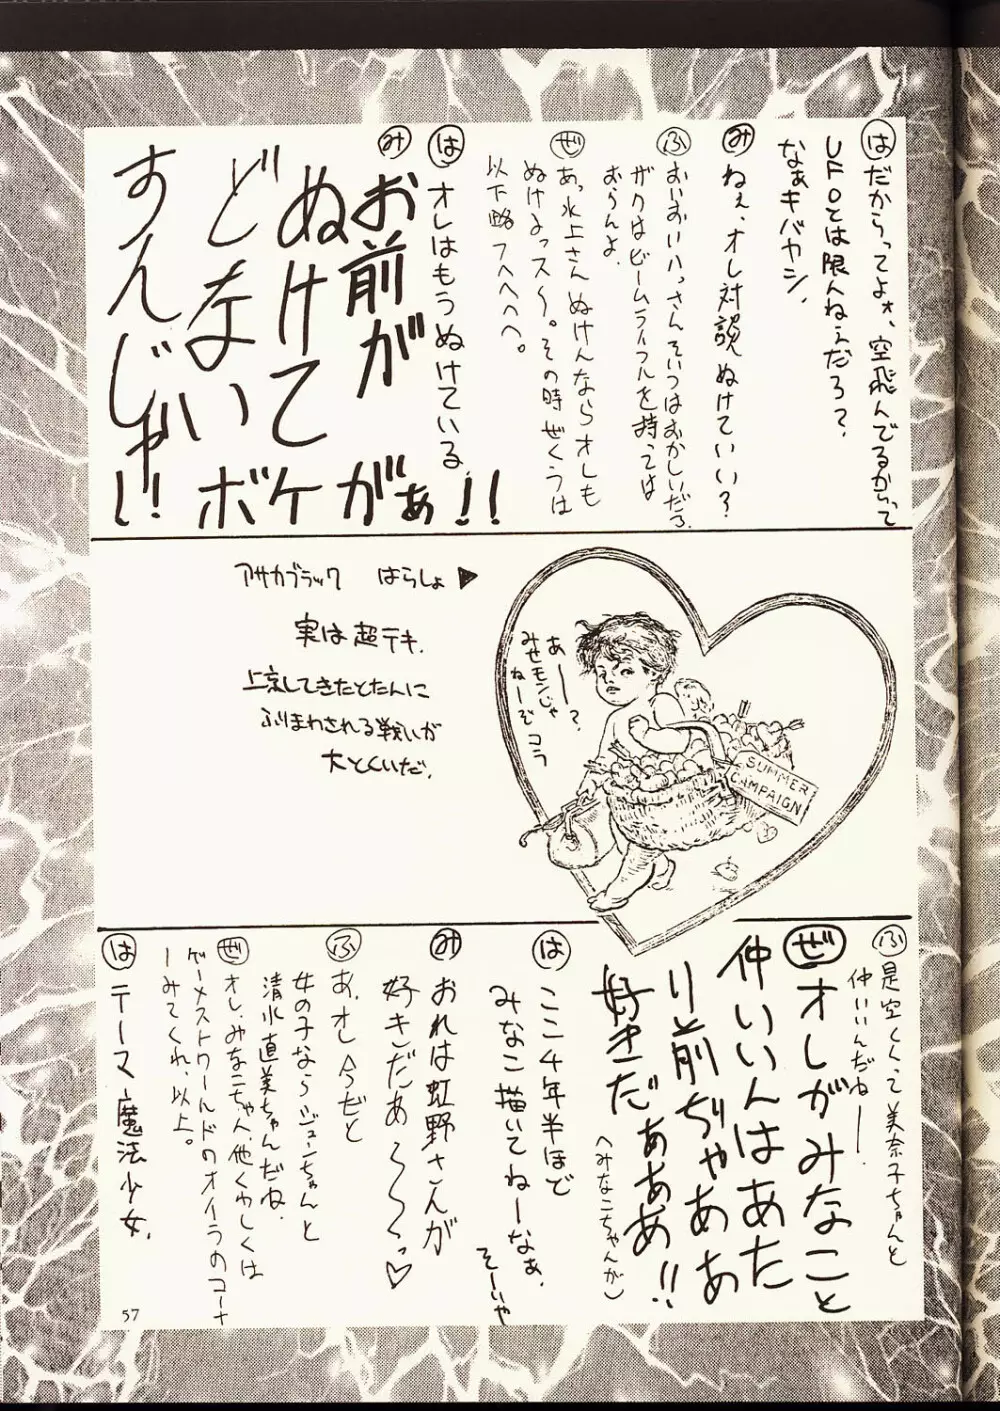 は だからってよォ、空飛んでるからって
UFOとは限んねぇだろ?、
なぁキバヤシ、
み ねぇ、オレ対談ぬけていい?
ふ おいおいハっさんそいつはおかしいだろ
ザクはビームライフルを持っては
おらんよ。
ぜ あっ、水上さんぬけんならオレも
ぬけるっス〜。その時ぜくうは
以下略フヘヘヘヘ。
は オレはもうぬけている。
み お前が
ぬけて
どないい
すんじゃ
い! ボケがぁ!!
アサカブラック はらしょ▶
実は超テキ、
上京してきたとたんに
ふりまわされる戦いが
大とくいだ。
あー?
みせモンじゃ
ねーぞコラ
SUMMER
CAMPAIGN
ふ 是空くって美奈子ちゃんと
仲いいんだねー。
ぜ オレがみなこと
仲いいんはあた
り前ぢゃああ
好きだぁぁぁ!!
(みなこちゃんが)
は ここ4年半ほど
みなこ描いてねーなぁ、
そーいや
み おれは虹野さんが
好きだあ〜〜〜っ♡
ふ あ、オレ今だと
女の子ならジューンちゃんと
清水直美ちゃんだね、
ぜ オレ、みなこちゃん、他くわしくは
ゲーメストワールドのオイラのコーナ
ーみてくれ、以上。
は テーマ魔法少女、
57